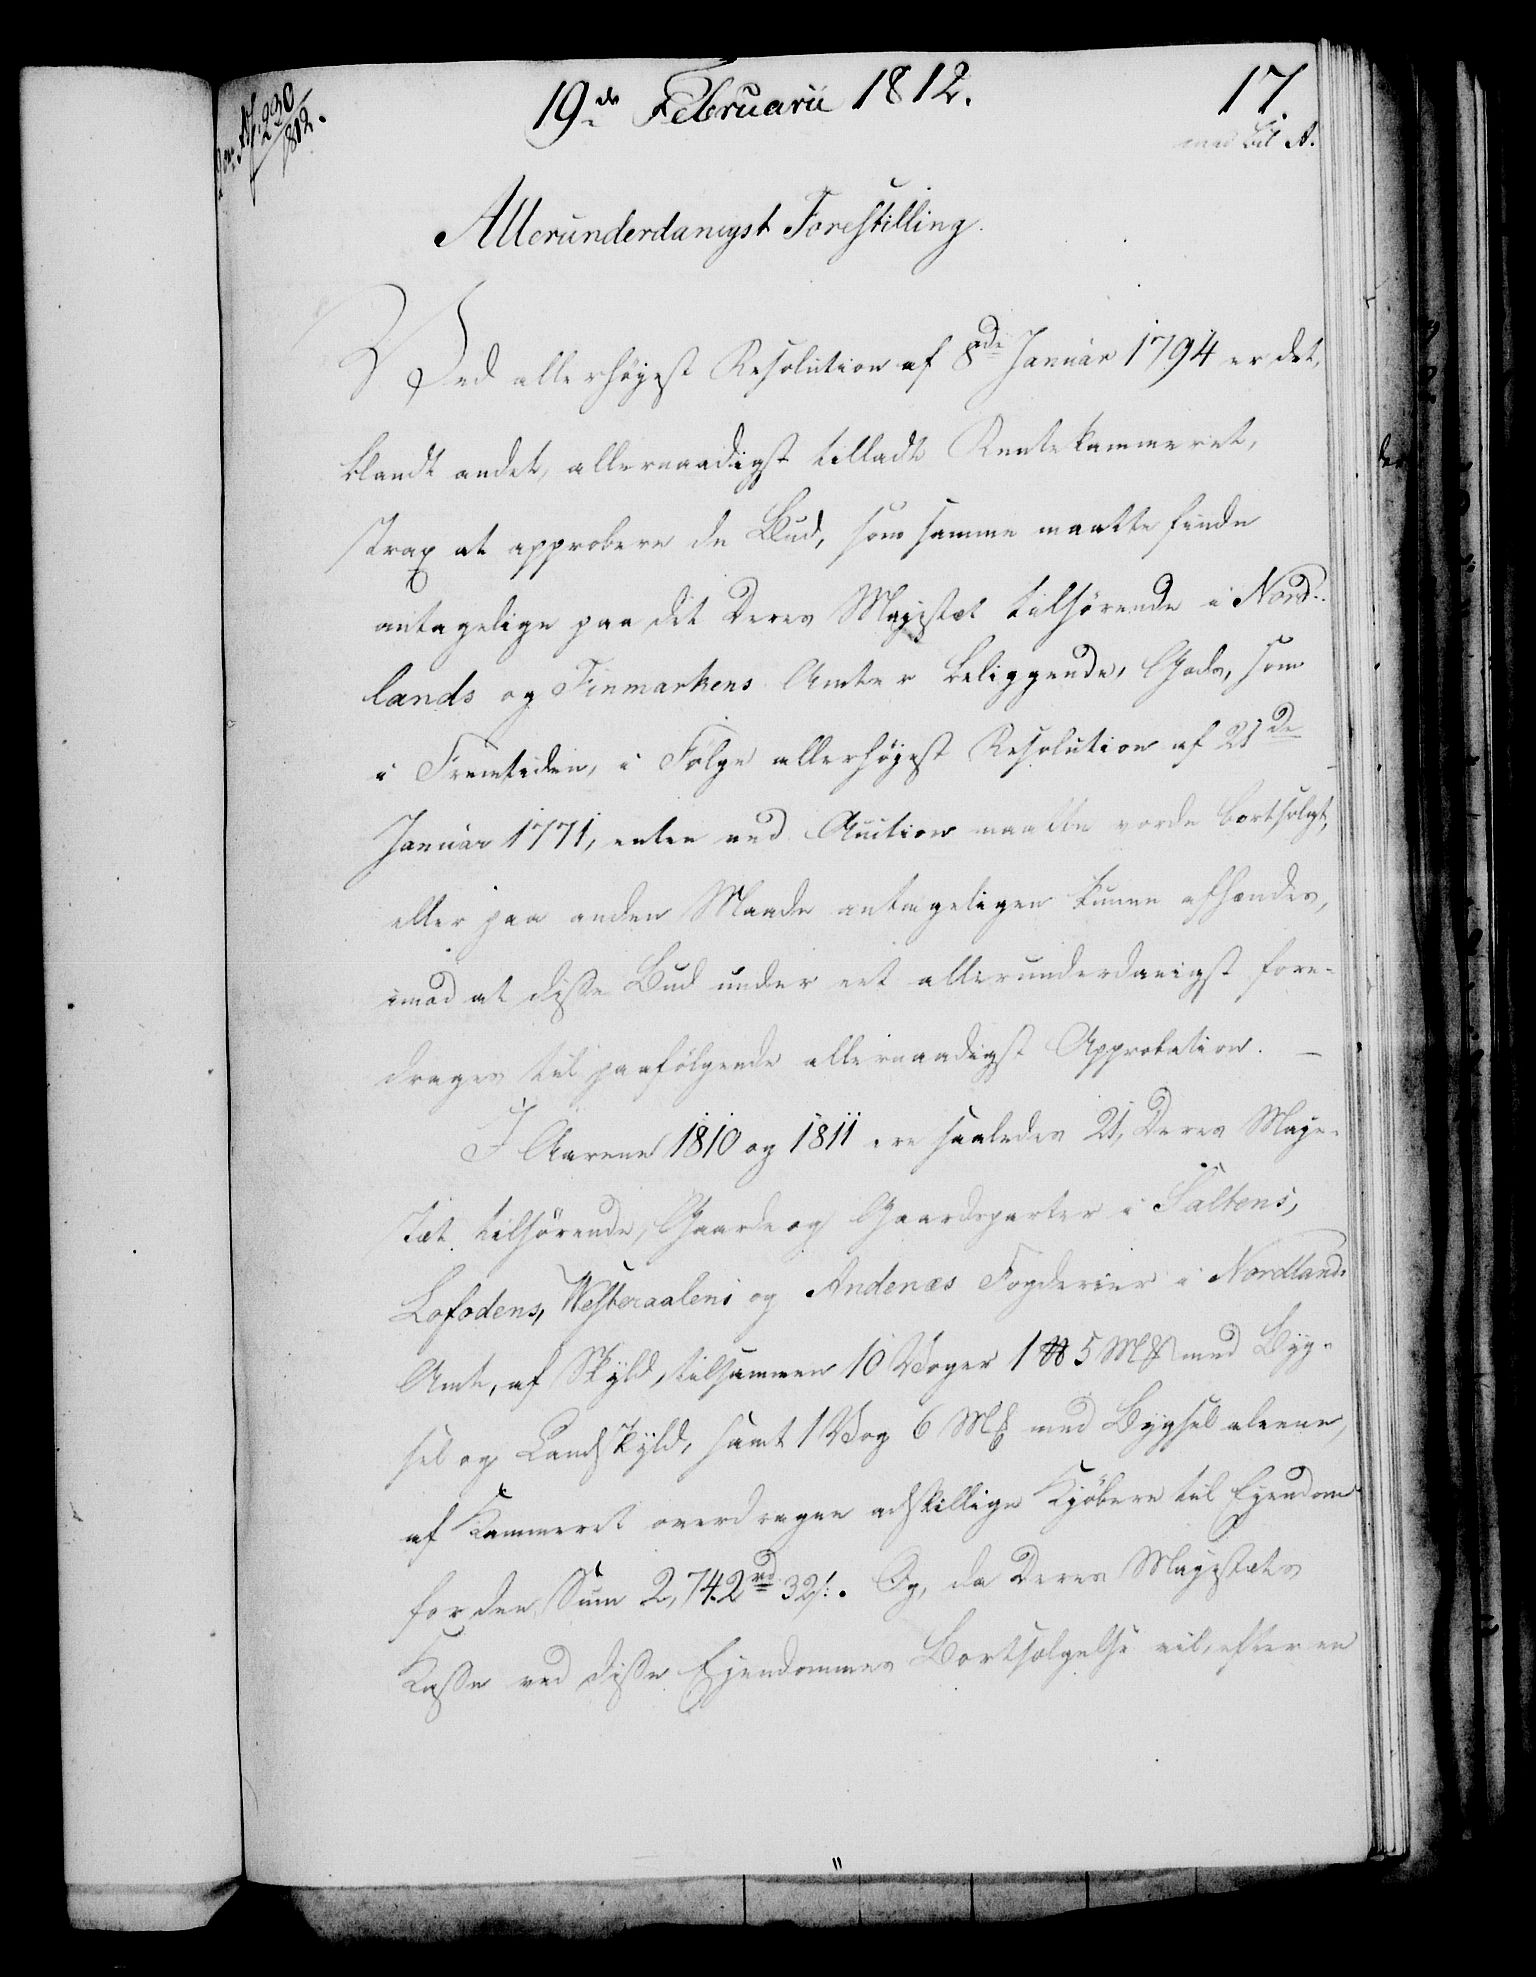 19de Februarii 1812.
17.
med Bil A.
No 230/1812.
Allerunderdanigst Forestilling.
Ved allerhøyest Resolution af 8de Januar 1794 er det,
blandt andet, allernaadigst tilladt Rentekammeret,
strax at approbere de Bud, som samme maatte finde
antagelige paa det Deres Majestæt tilhørende i Nord-
lands og Finmarkens Amter beliggende Gods, som
i Fremtiden, i Følge allerhøyest Resolution af 21de
Januar 1771, enten ved Auction maatte vorde bortsolgt,
eller paa anden Maade antageligen kunne afhændes,
imod at disse Bud under eet allerunderdanigst fore-
drages til paafølgende allernaadigst Approbation. —
I Aarene 1810 og 1811 ere saaledes 21, Deres Maje-
stæt tilhørende, Gaarde og Gaardsparter i Saltens,
Lofodens, Westeraalens og Andenæs Fogderier i Nordlands
Amt, af Skyld, tilsammen 10 Voger 1 ℔ 5 M℔ med Byg-
sel og Landskyld, samt 1 Vog 6 M℔ med Bygsel alene,
af Kammeret overdragne adskillige Kjøbere til Ejendom
for den Sum 2,742 rd 32 s. Og, da Deres Majestæts
Kasse ved disse Ejendommes Bortsælgelse vil, efter en